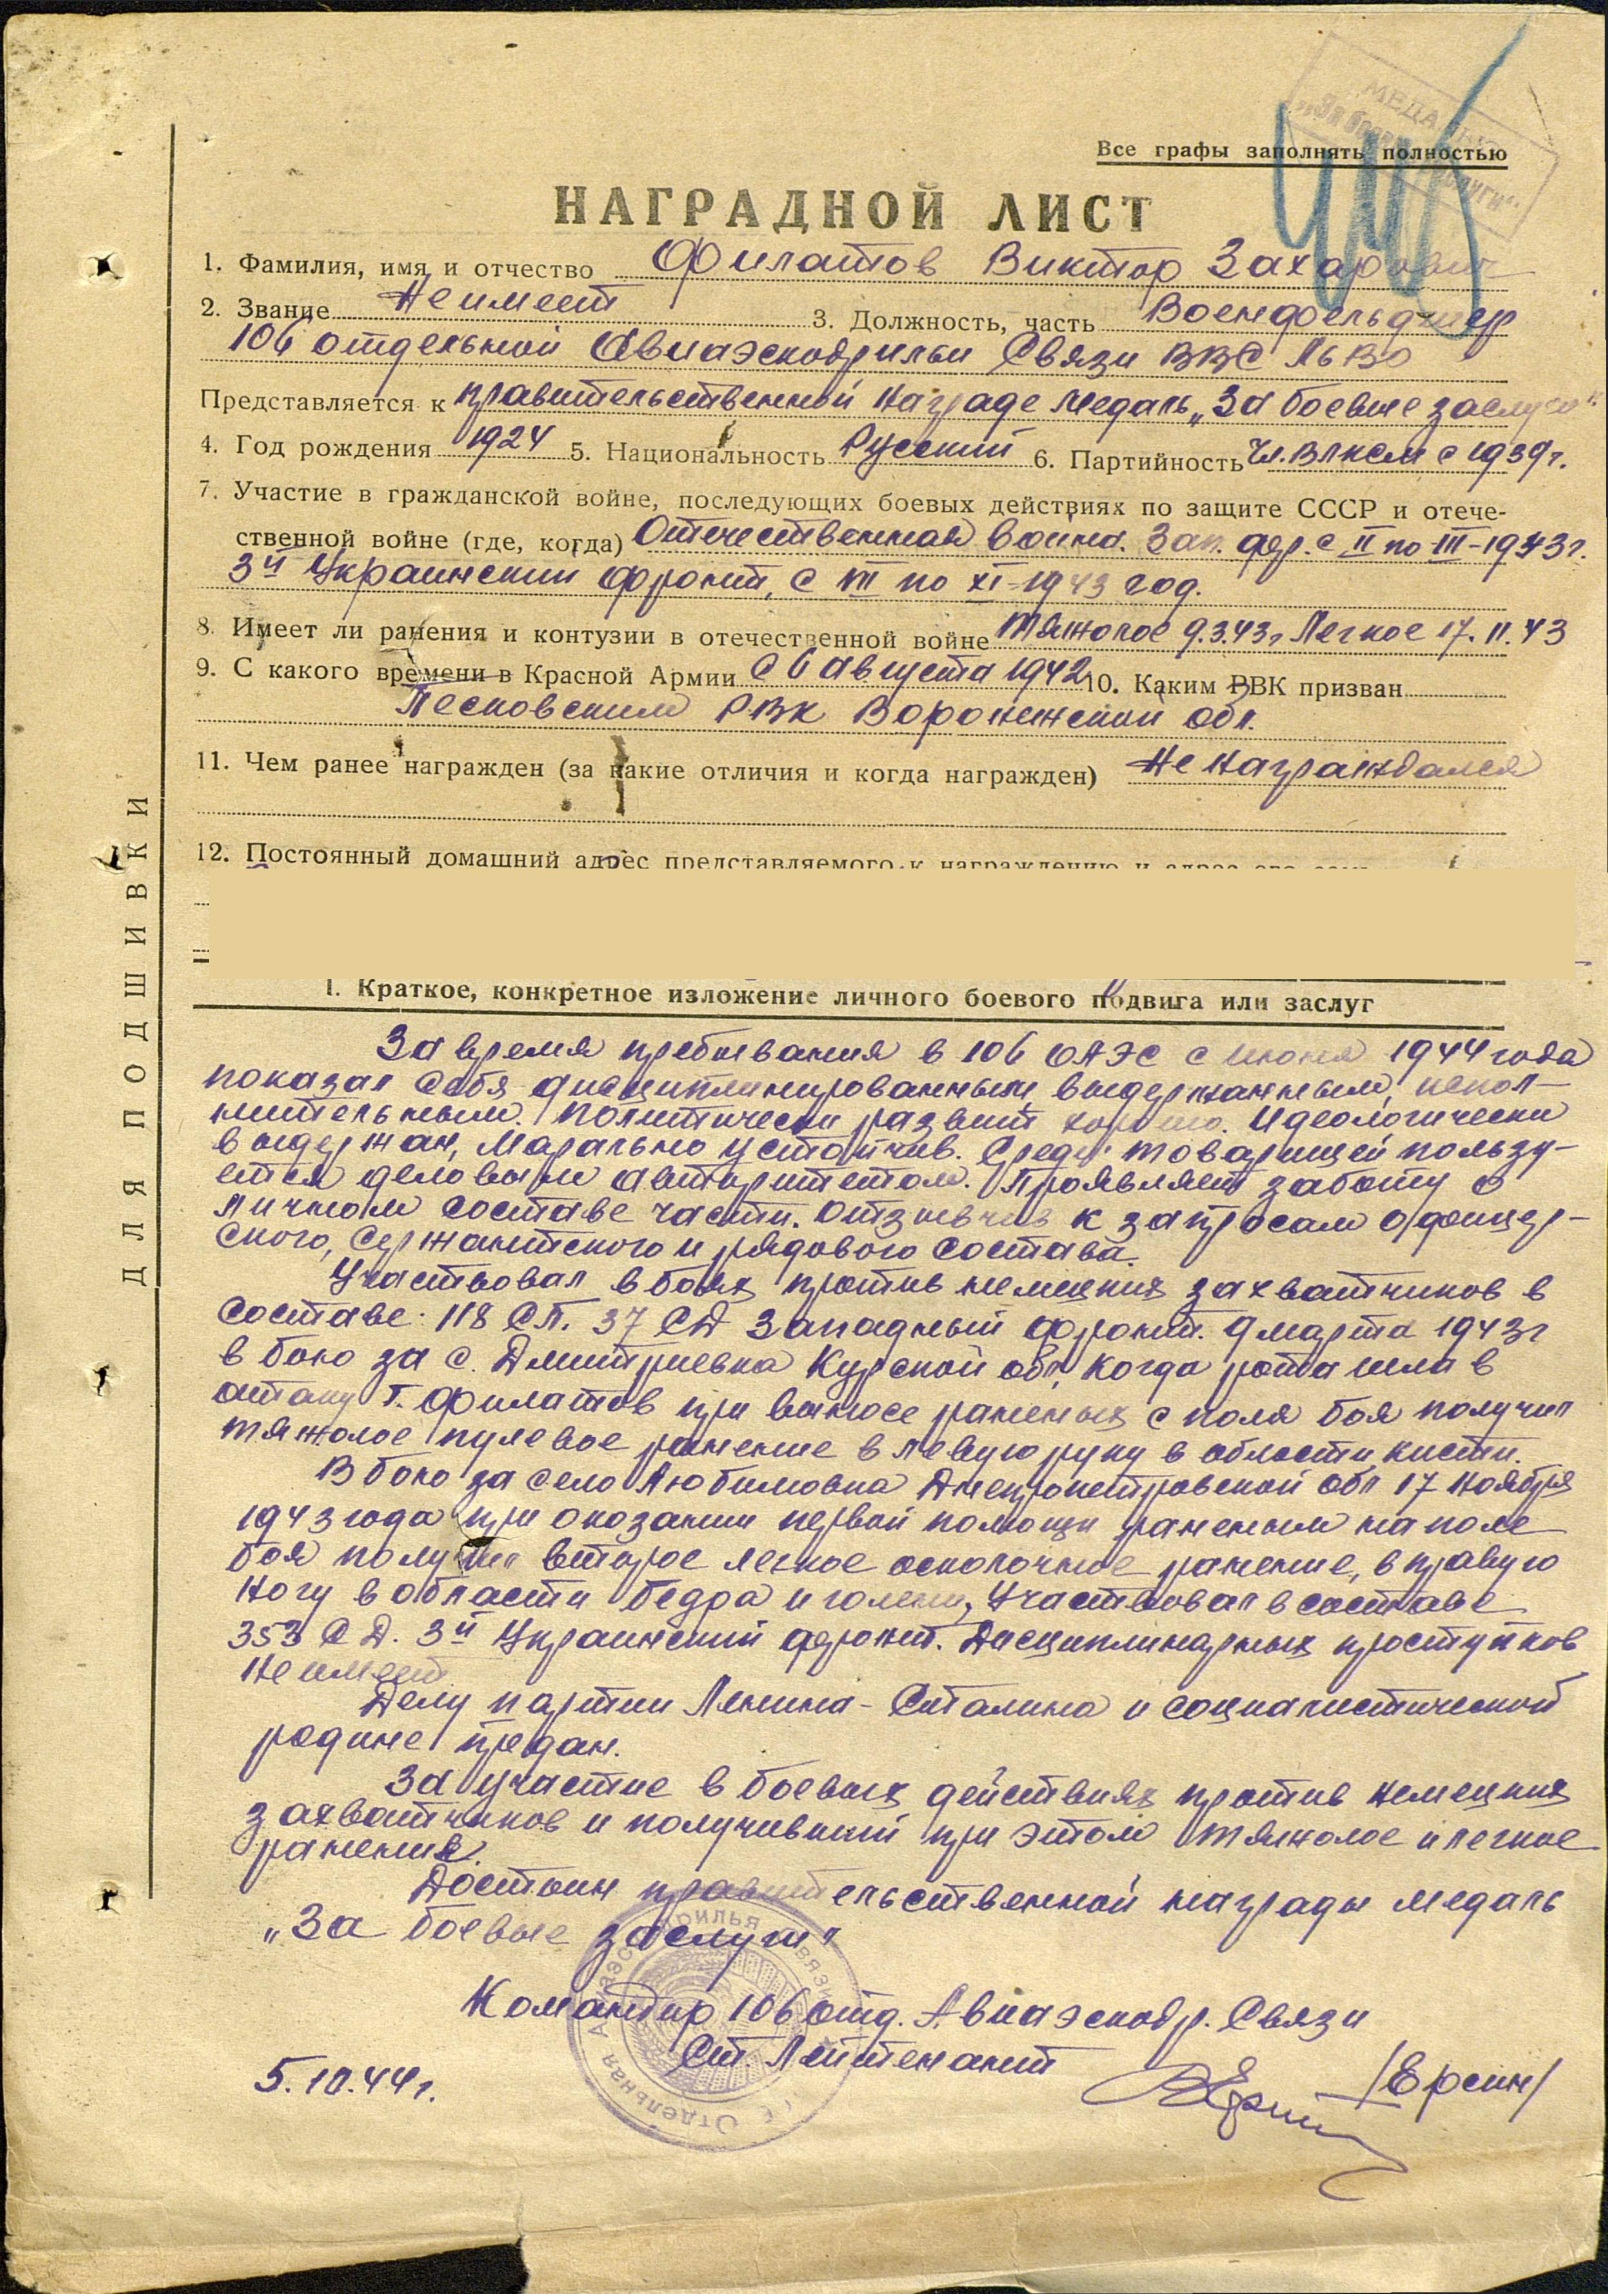 МЕДАЛЬ
Все графы заполнять полностью
НАГРАДНОЙ ЛИСТ
1. Фамилия, имя и отчество Филатов Виктор Захарович
2. Звание Не имеет 3. Должность, часть Военфельдшер
106 отдельной Авиаэскадрильи Связи ВВС ЛьВО
Представляется к правительственной награде медаль „За боевые заслуги"
4. Год рождения 1924 5. Национальность Русский 6. Партийность Чл. ВЛКСМ с 1939г.
7. Участие в гражданской войне, последующих боевых действиях по защите СССР и отече-
ственной войне (где, когда) Отечественная война. Зап. фр. с II по III-1943г.
3й Украинский фронт, с VIII по XI-1943 год.
8. Имеет ли ранения и контузии в отечественной войне Тяжолое 9.3.43г Легкое 17.11.43
9. С какого времени в Красной Армии с 6 августа 1942 10. Каким РВК призван
Песковским РВК Воронежской обл.
11. Чем ранее награжден (за какие отличия и когда награжден) Не награждался
12. Постоянный домашний адрес представляемого к награждению и адрес его
ДЛЯ ПОДШИВКИ
1. Краткое, конкретное изложение личного боевого подвига или заслуг
За время пребывания в 106 ОАЭС с июня 1944 года
показал себя дисциплинированным, выдержанным, испол-
нительным. Политически развит хорошо. Идеологически
выдержан, Морально устойчив. Среди товарищей пользу-
ется деловым авторитетом. Проявляет заботу о
личном составе части. Отзывчив к запросам офицер-
ского, Сержантского и рядового состава.
Участвовал в боях против немецких захватчиков в
составе: 118 СП. 37 СД Западный фронт. 9 марта 1943г
в бою за с. Дмитриевка Курской обл, когда рота шла в
атаку т. Филатов при выносе раненых с поля боя получил
тяжолое пулевое ранение в левую руку в области кисти.
В бою за село Любимовка Днепропетровской обл 17 ноября
1943 года при оказании первой помощи раненым на поле
боя получил второе легкое осколочное ранение, в правую
ногу в области бедра и голени, Участвовал в составе
353 СД. 3й Украинский фронт. Дисциплинарных проступков
Не имеет
Делу партии Ленина - Сталина и социалистической
родине предан.
За участие в боевых действиях против немецких
захватчиков и получивший при этом тяжолое и легкое
ранения.
Достоин правительственной награды медаль
„За боевые заслуги"
Командир 106 отд. Авиаэскадр. Связи
Ст. Лейтенант /Ерсин/
5.10.44г.
Отдельная Авиаэскадрилья связи